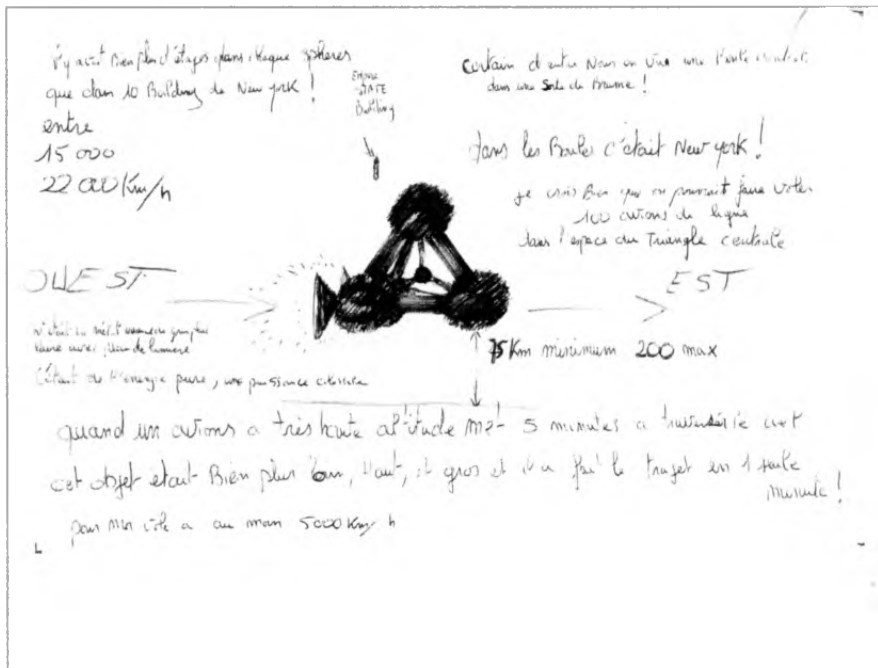 il y avait Bien plus d'étages dans chaque sphères
que dans 10 Building de New york !
entre
15 000
22 000 Km/h
EMPIRE
STATE
Building
certain d'entre Nous on vue une
dans une sorte de Brume !
dans les Boules c'était New york !
je crois Bien que on pourrait faire voler
100 avions de ligne
dans l'espace du Triangle centrale
OUEST
EST
de lumière
C'était de l'énergie pure, une puissance colossale
75 Km minimum 200 max
quand un avions a très haute altitude met 5 minutes a
cet objet était Bien plus loin, Haut, et gros et il a fait le trajet en 1 seule
minute !
pour moi au 5000 Km/h